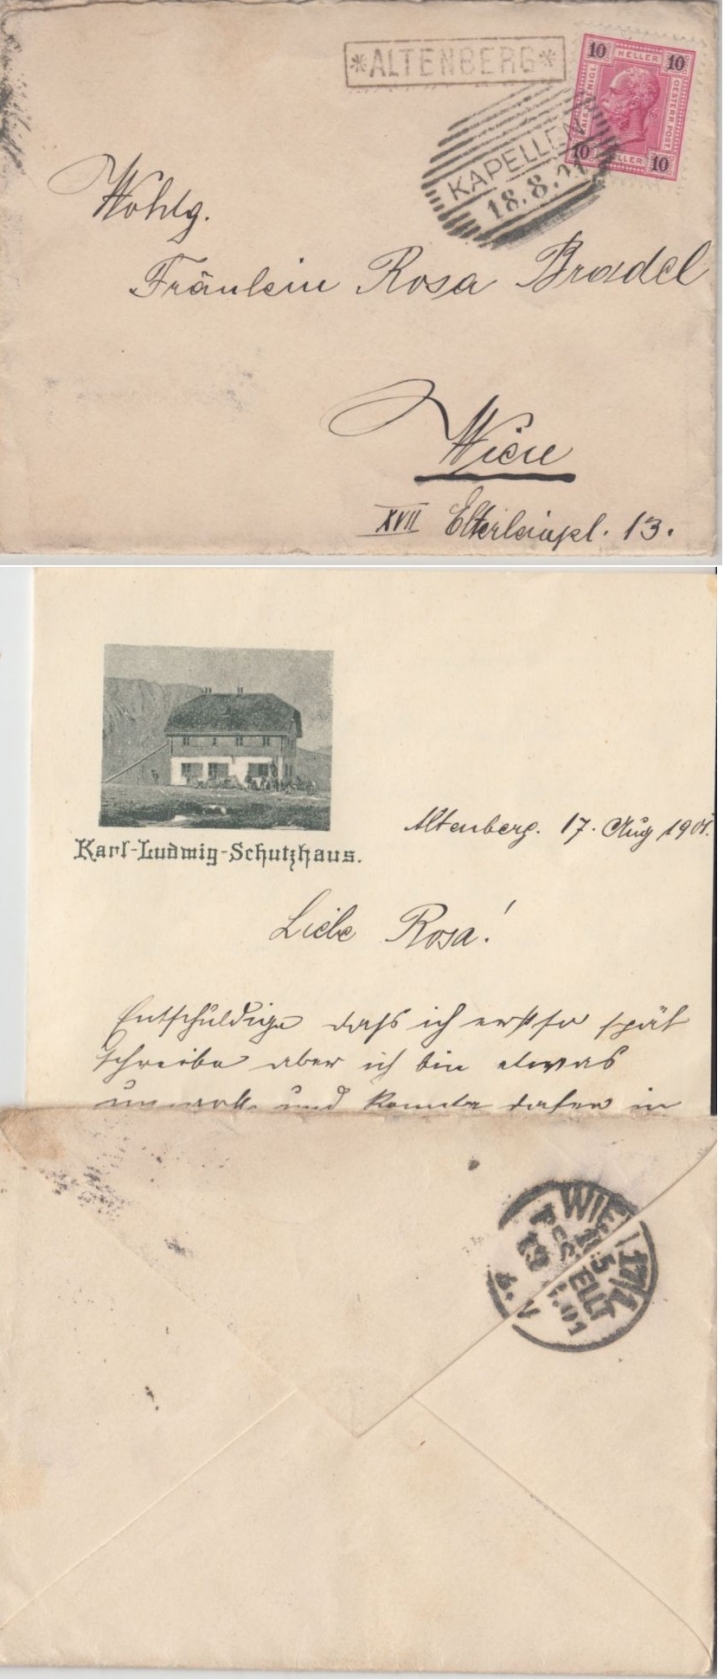 *ALTENBERG*
10 HELLER 10
10 HELLER 10
KAPELLEN
18.8.
Wohlg.
Fräulein Rosa Bradel
Wien
XVII 13.
Karl-Ludwig-Schutzhaus.
Altenberg. 17. Aug 1901.
Liebe Rosa!
Entschuldige daſs ich erst so spät
schreibe aber ich bin etwas
und konnte daher in
WIEN 17/1
BESTELLT